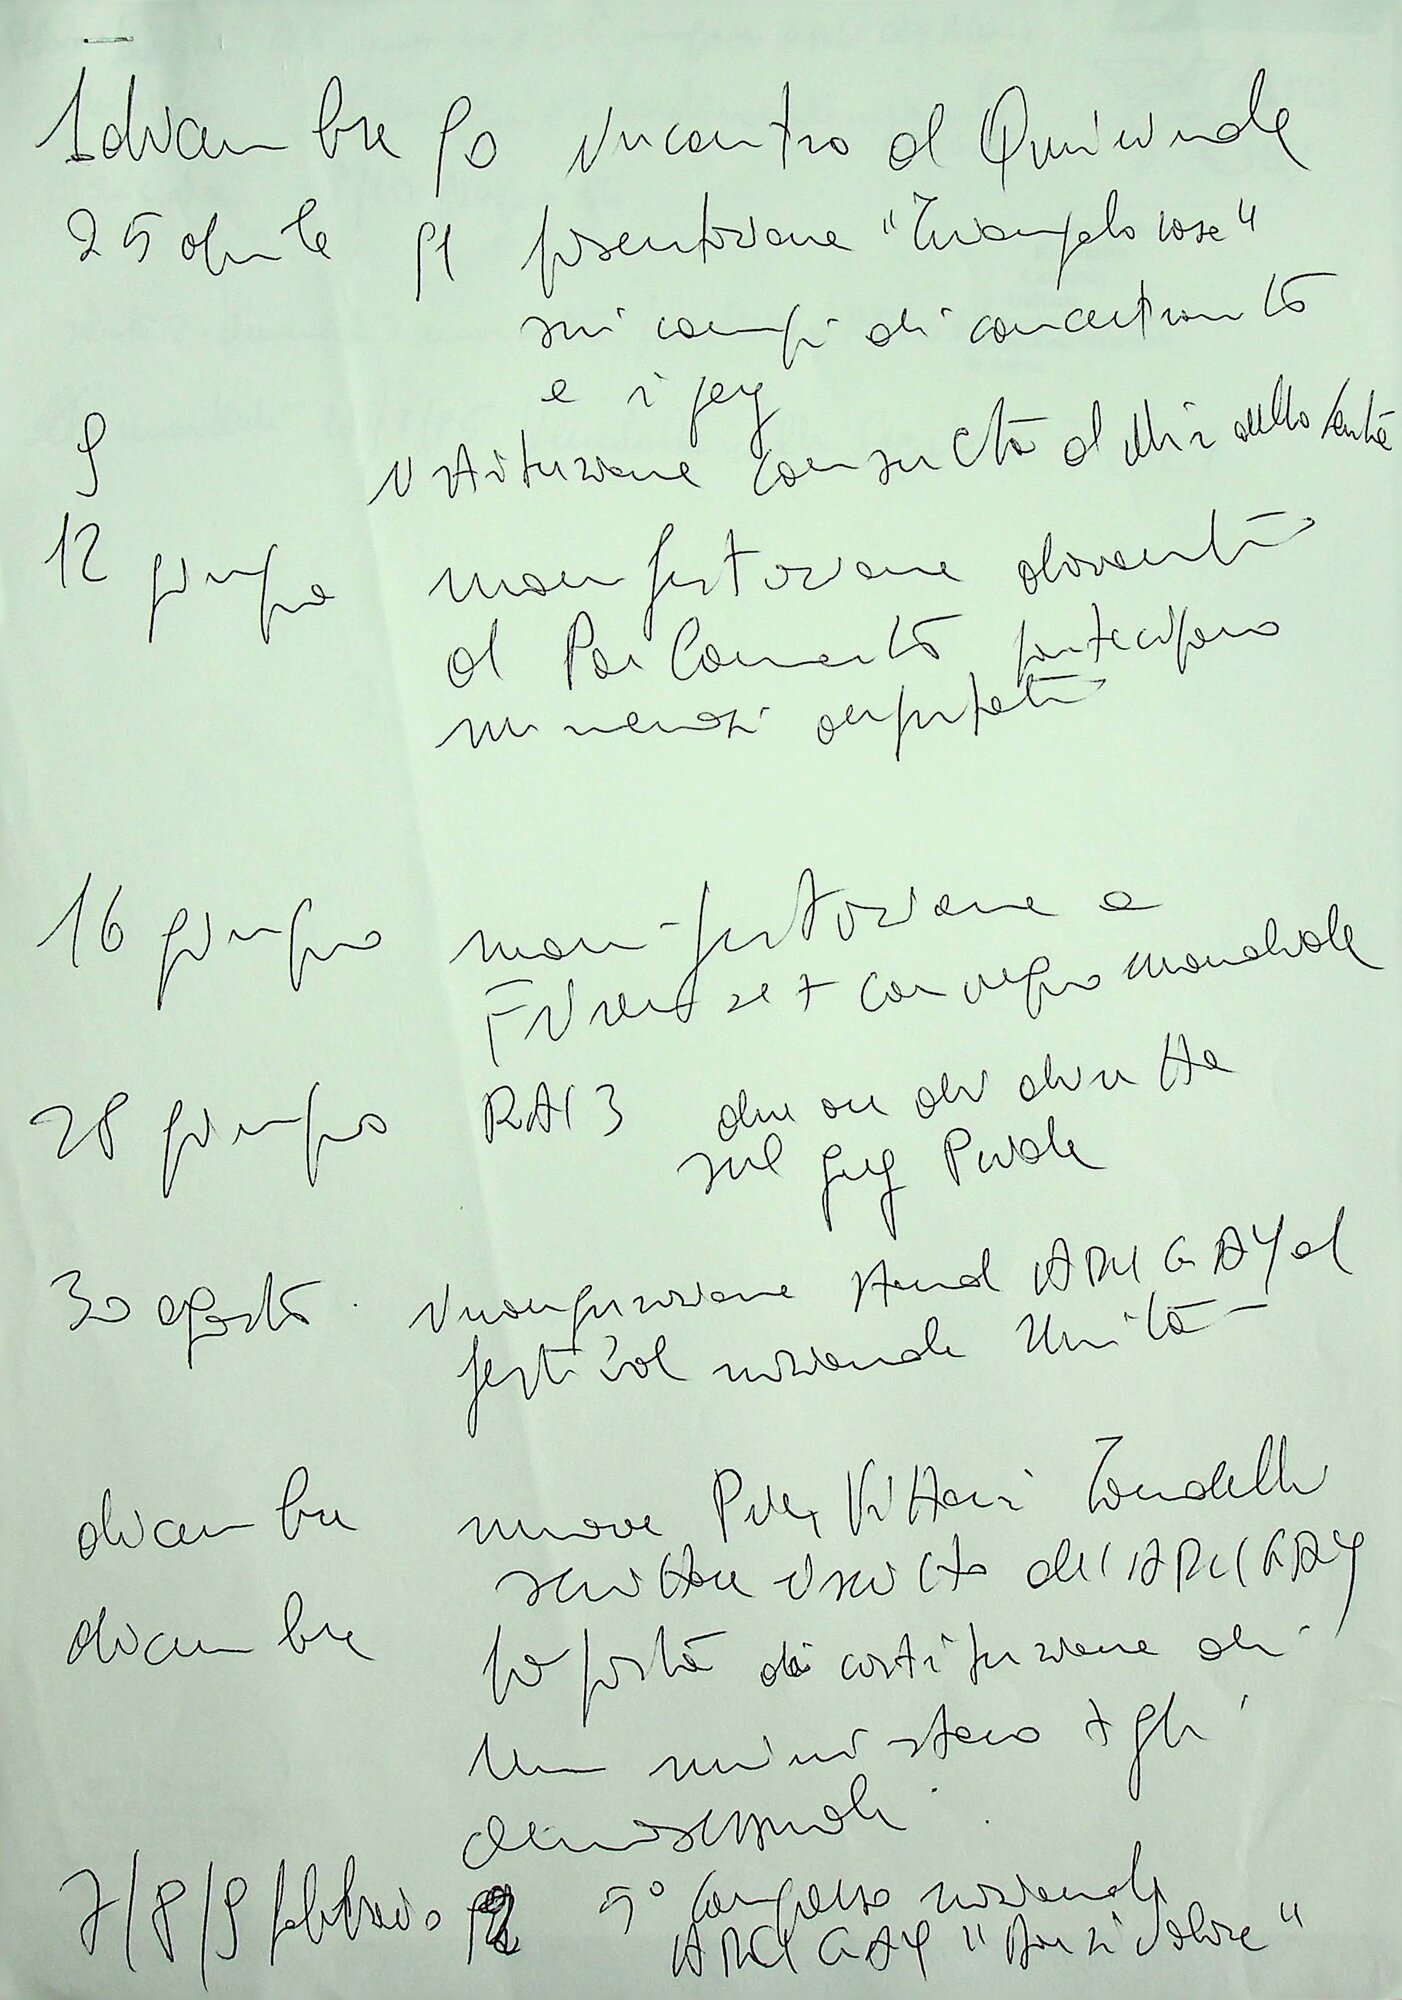 1 dicembre 90 incontro al Quirinale
25 aprile 91 presentazione "Triangolo rosa"
sui campi di concentramento
e i gay
9 istituzione consulta al Min della Sanità
12 giugno manifestazione davanti
al Parlamento partecipano
numerosi
16 giugno manifestazione a
Firenze + convegno mondiale
28 giugno RAI 3 due ore di diretta
sul gay Pride
30 agosto inaugurazione stand ARCI GAY al
festival nazionale Unità
dicembre muore Pier Vittorio Tondelli
scrittore iscritto all'ARCI GAY
dicembre proposta di costituzione di
un ministero x gli
omosessuali
7/8/9 febbraio 92 5° Congresso nazionale
ARCI GAY "Anzi Valore"